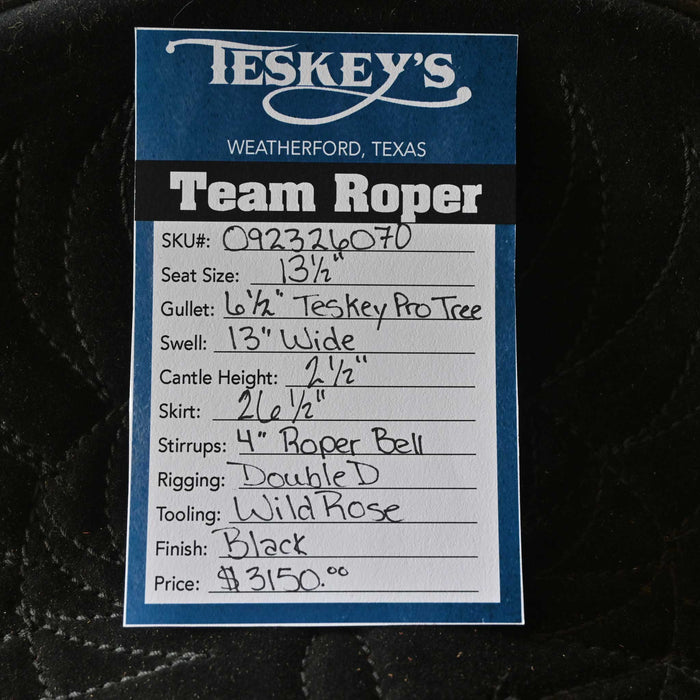 TESKEY'S
WEATHERFORD, TEXAS
Team Roper
SKU#: 092326070
Seat Size: 13½"
Gullet: 6½" Teskey Pro Tree
Swell: 13" Wide
Cantle Height: 2½"
Skirt: 26½"
Stirrups: 4" Roper Bell
Rigging: Double D
Tooling: Wild Rose
Finish: Black
Price: $3150.00